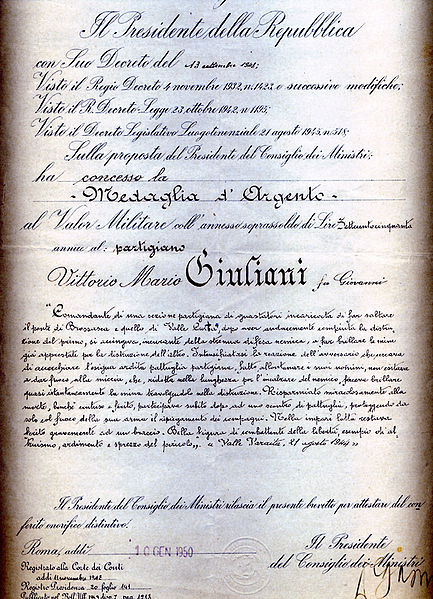 Il Presidente della Repubblica
con Suo Decreto del 13 settembre 1948;
Visto il Regio Decreto 4 novembre 1932, n. 1423 e successive modifiche;
Visto il R. Decreto-Legge 23 ottobre 1942, n. 1195;
Visto il Decreto Legislativo Luogotenenziale 21 agosto 1945, n. 518;
Sulla proposta del Presidente del Consiglio dei Ministri;
ha concesso la
- Medaglia d'Argento -
al Valor Militare coll'annesso soprassoldo di Lire Settecentocinquanta
annue al: partigiano
Vittorio Mario Giuliani fu Giovanni
"Comandante di una sezione partigiana di guastatori incaricata di far saltare
il ponte di Brossasca e quello di Valle, dopo aver audacemente compiuta la distru
zione del primo, si accingeva, incurante della strenua difesa nemica, a far brillare le mine
già apprestate per la distruzione dell'altro. Intensificatasi la reazione dell'avversario che, cercava
di accerchiare l'esigua ardita pattuglia partigiana, fatti allontanare i suoi uomini, non esitava
a dar fuoco alla miccia, che, ridotta nella lunghezza per l'incalzare del nemico, faceva brillare
quasi istantaneamente la mina travolgendolo nella distruzione. Risparmiato miracolosamente dalla
morte, benché contuso e ferito, partecipava subito dopo ad uno scontro di pattuglie, proteggendo da
solo col fuoco della sua arma il ripiegamento dei compagni. Nella impari lotta restava
ferito gravemente ad un braccio. Bella figura di combattente della libertà, esempio di al
truismo, ardimento e sprezzo del pericolo". - Valle Varaita, 21 agosto 1944 -
Il Presidente del Consiglio dei Ministri rilascia il presente brevetto per attestare del con
ferito onorifico distintivo.
Roma, addì 10 GEN 1950
Il Presidente
del Consiglio dei Ministri
Registrato alla Corte dei Conti
addì novembre 1948
Registro Presidenza 20 foglio 141
Pubblicato nel Boll. Uff. 1949 disp. 7 pag. 1218